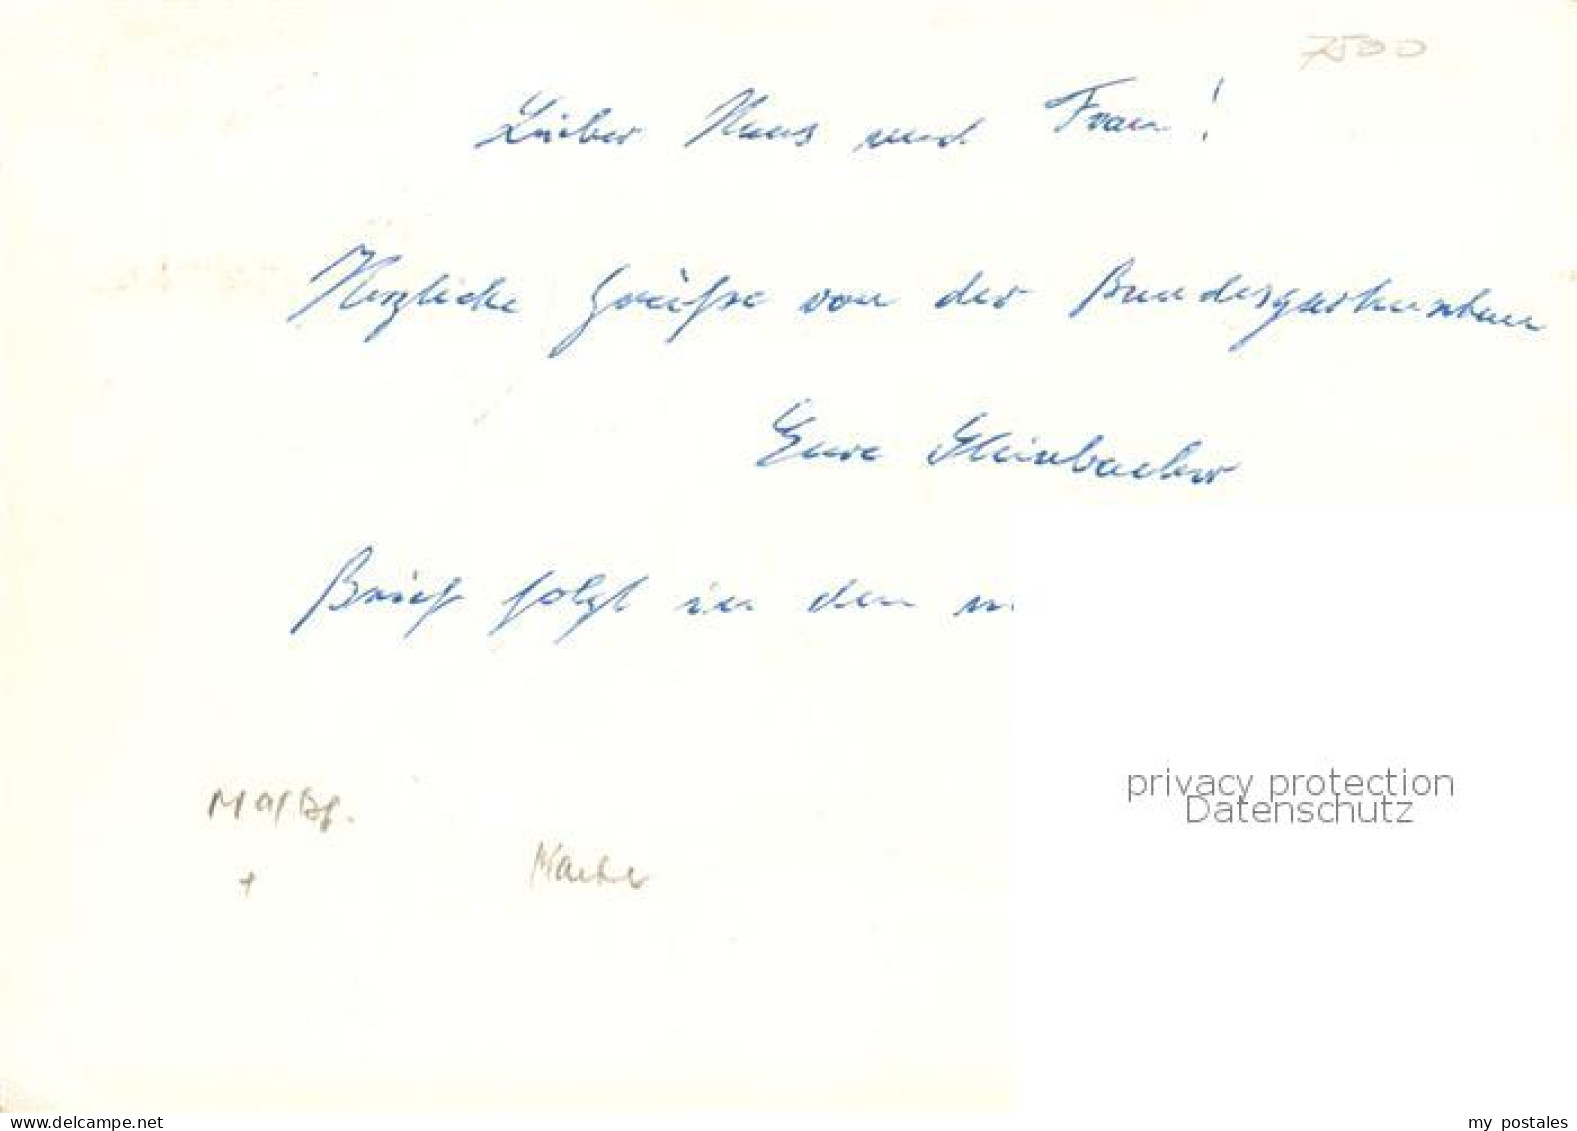 7500
Lieber Hans und Frau!
Herzliche Grüße von der Bundesgartenschau
Eure Steinbacher
Brief folgt in den n
privacy protection
Datenschutz
+
www.delcampe.net
my_postales